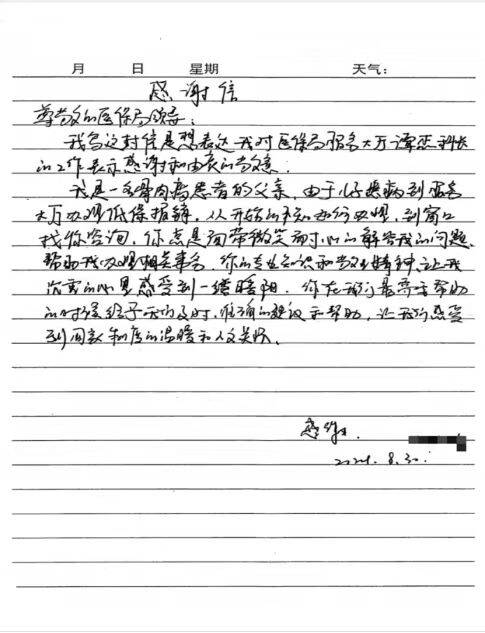 月 日 星期 天气：
感谢信
尊敬的医保局领导：
我写这封信是想表达我对医保局服务大厅谭 科长
的工作表示感谢和由衷的敬意。
我是一名骨肉 患者的父亲，由于儿 患病到 服务
大厅办理低保报销，从开始的 如何办理，到窗口
找你咨询，你总是面带微笑而耐心的解答我的问题，
帮助我办理相关事务，你的专业知识和敬业精神，让我
沉重的心里感受到一缕暖阳，你在我们最需要帮助
的时候给予我们及时，准确的建议和帮助，让我们感受
到国家制度的温暖和人文关怀。
感谢人
2024.8.30.